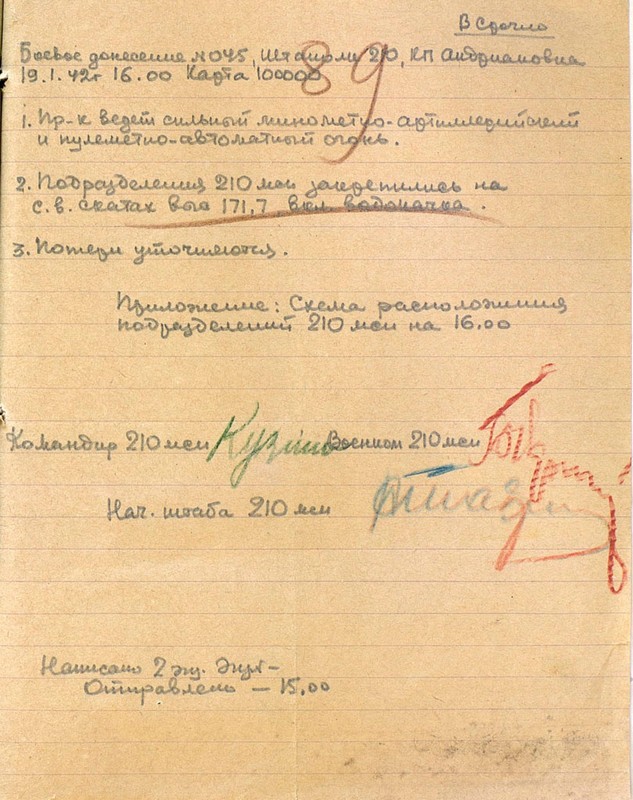 В Сдочло
89
Боевое донесение № 045, Штаполи 210, КП Андриановна
19.1.42г 16.00 Карта 100000
1. Пр-к ведет сильный минометно-артиллерийский
и пулеметно-автоматный огонь.
2. Подразделения 210 мсп закрепились на
с.в. скатах выс 171,7 вкл водокачка.
3. Потери уточняются.
Приложение: Схема расположения
подразделений 210 мсп на 16.00
Командир 210 мсп Военком 210 мсп
Нач. штаба 210 мсп
Написано 2 экз.
Отправлено — 15,00